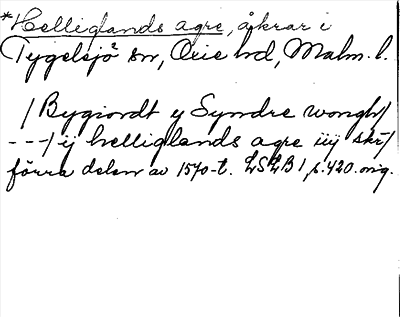 *Helliglands agre, åkrar i
Tygelsjö sn, Oxie hd, Malm. l.
/Bygiordt y Syndre wongh/
---/ij helliglands agre iiij skr/
förra delen av 1570-t. LSLB 1, s. 420. orig.